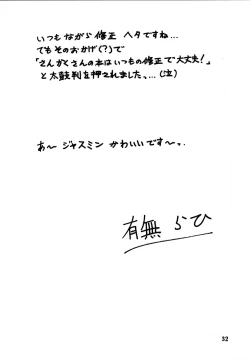 いつもながら修正 ヘタですね...
でもそのおかげ(?)で
「さんかくさんの本はいつもの修正で大丈夫!」
と太鼓判を押されました。...(泣)
あ〜 ジャスミン かわいいです〜。
有無 らひ
32